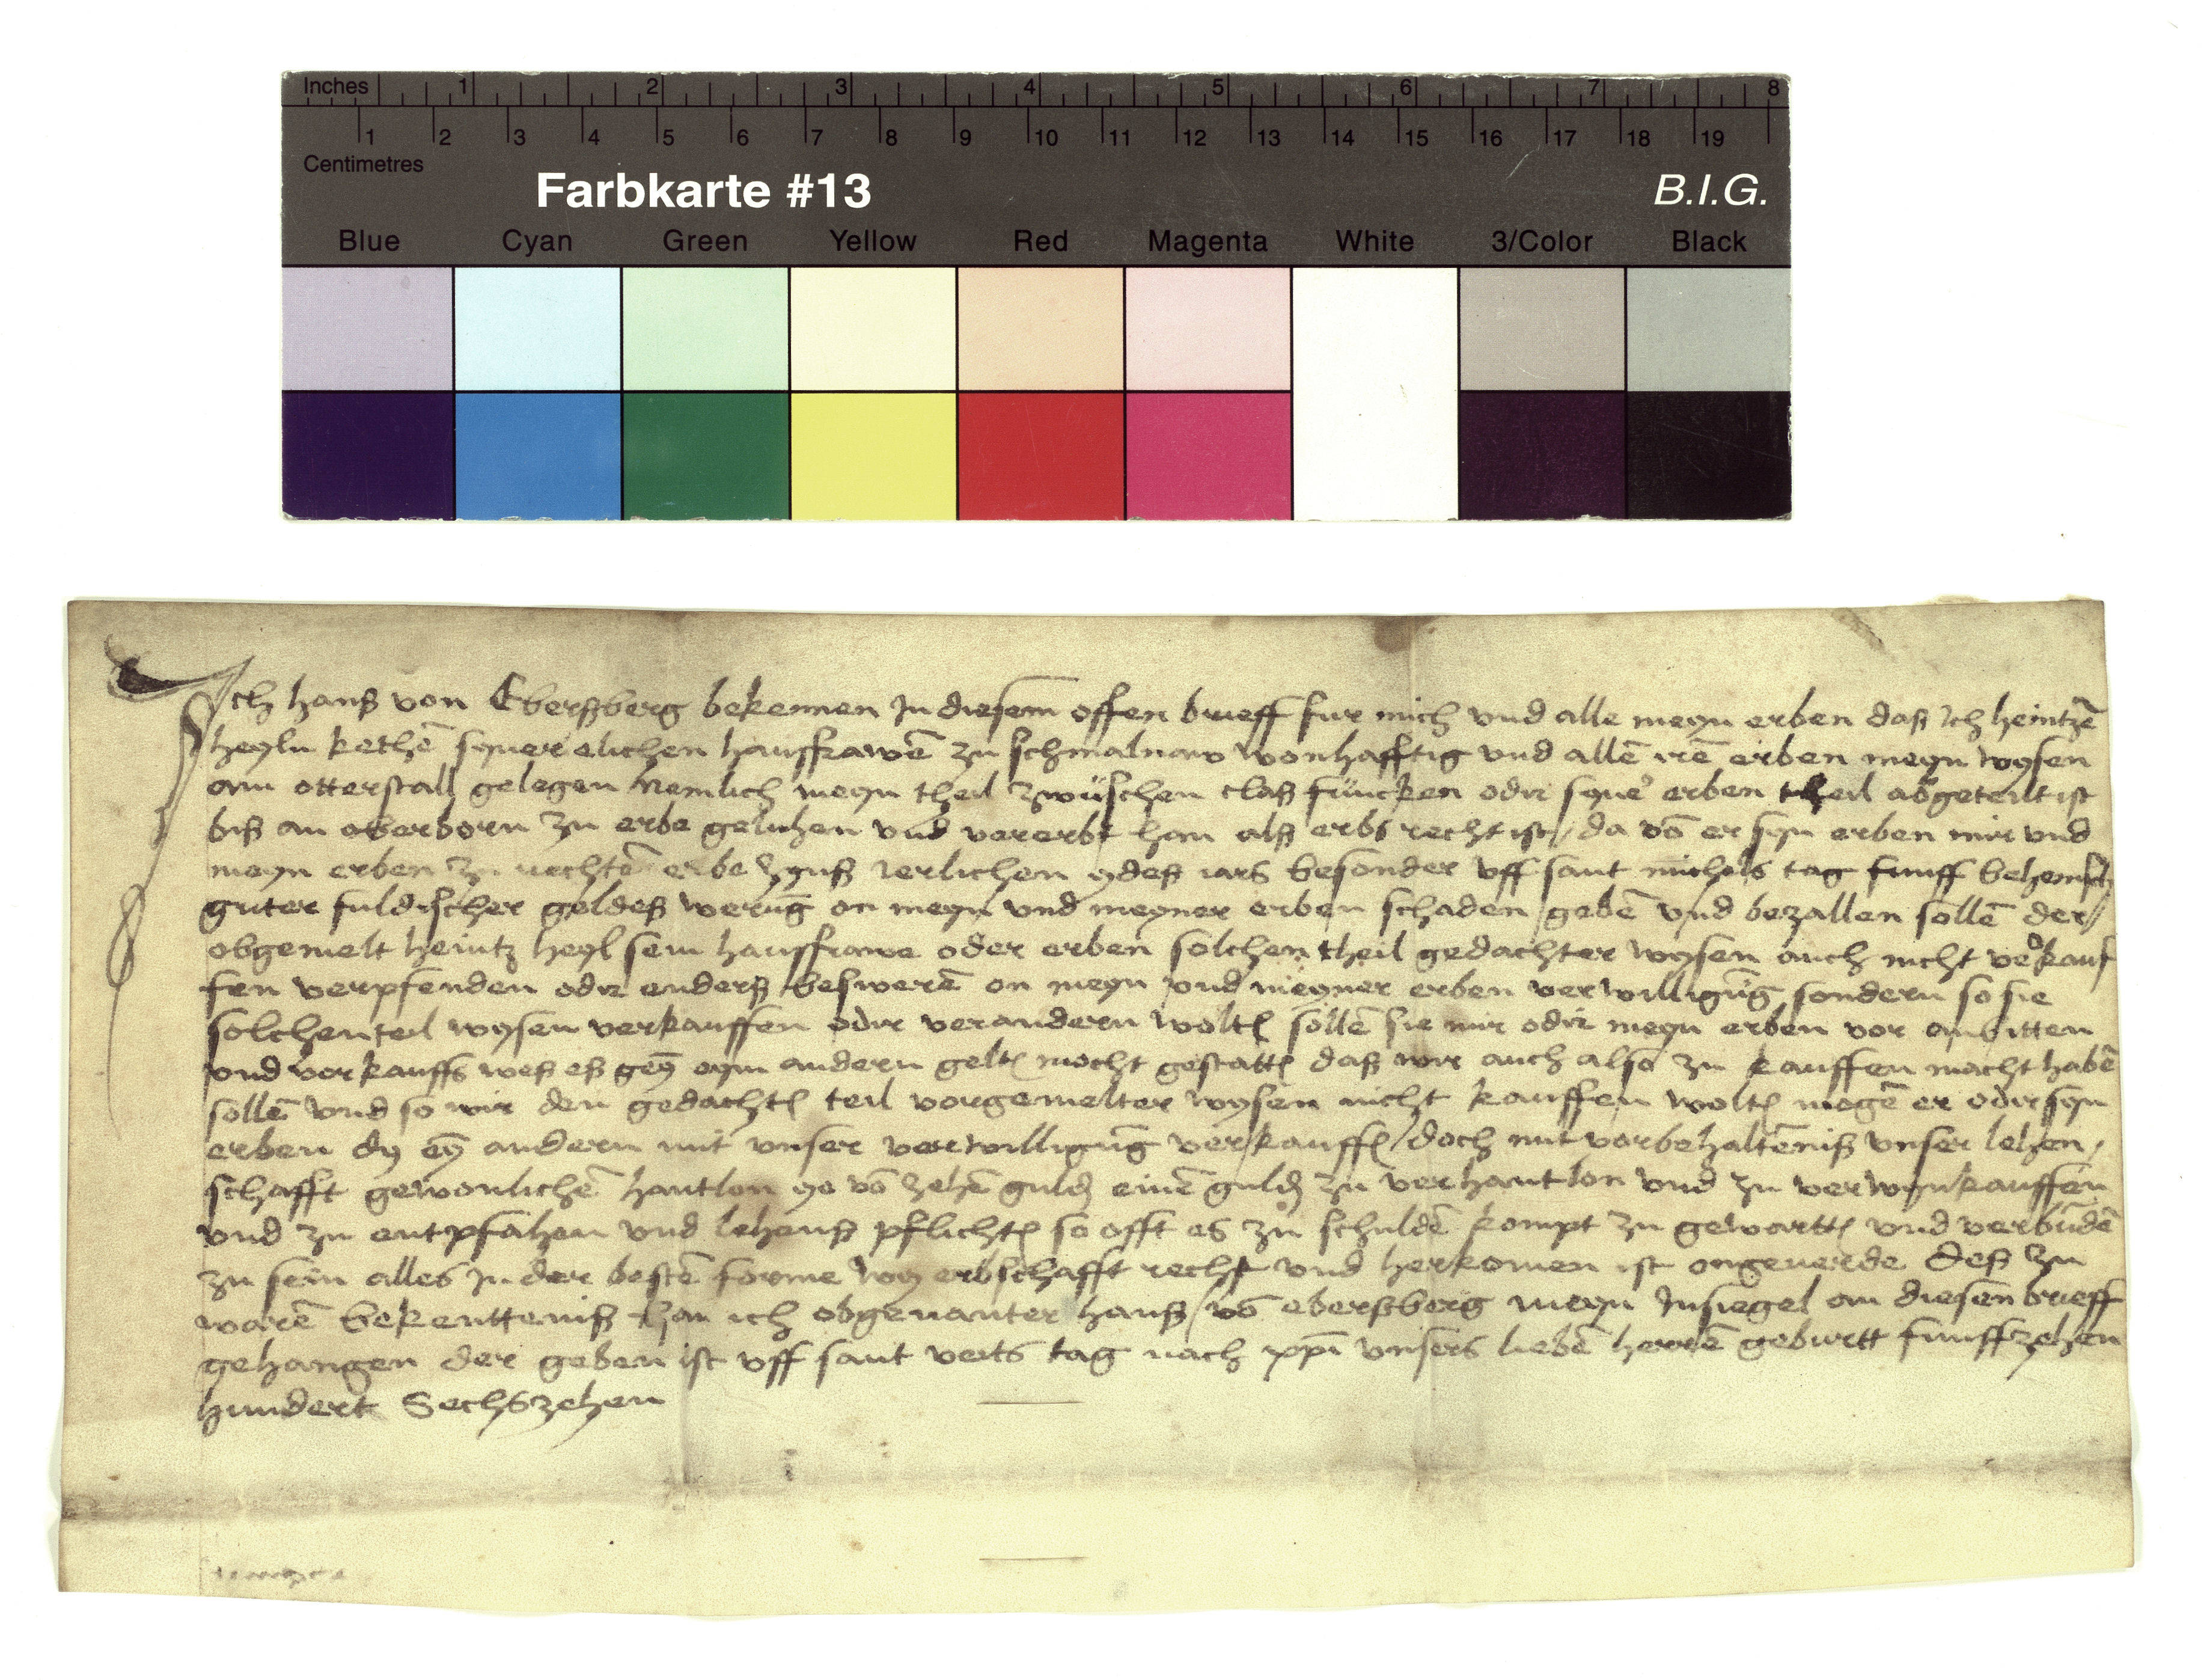 Inches 1 2 3 4 5 6 7 8
1 2 3 4 5 6 7 8 9 10 11 12 13 14 15 16 17 18 19
Centimetres
Farbkarte #13 B.I.G.
Blue Cyan Green Yellow Red Magenta White 3/Color Black
Ich hanß von Ebersberg bekennen In diesem offen brieff fur mich und alle meyn erben daß ich heintzē
heyln kethē syner elichen haußfrawē zu schmalnaw wonhafftig und allē irē erben meyn wysen
am otterstall gelegen Nemlich meyn theil zwüschen claß füncken odir syner erben theil abgeteilt ist
biß an oberborn zu erbe geluhen vnd vererbt han alß erbs recht ist / da vō er syn erben mir vnd
meyn erben zu rechtē erbe zynß ierlichen ydeß iars besonder vff sant michels tag funff behemsch
guter fuldischer geldeß werūg on meyn vnd meyner erben schaden gebē vnd bezallen sollē der /
obgemelt heintz heyl sein haußfrawe oder erben solchen theil gedachter wysen auch nicht verkauf
fen verpfenden odir anderß beswerē on meyn vnd meyner erben verwilligūg sondern so sie
solchen teil wysen verkauffen odir verandern wolten sollē sie mir odir meyn erben vor anbitten
vnd vorkauffs weß eß geȳ eym andern gelten mocht gestatten daß wir auch also zu kauffen macht habē
sollē vnd so wir den gedachten teil vorgemelter wysen nicht kauffen wolten mogē er odir syn
erben dy eȳ andern mit vnser verwilligūg verkauffen / doch mit vorbehaltēniß vnser lehen /
schafft gewonlichē hantlon ye vō zehē guld einē guld zu verhantlon vnd zu verwynkauffen
vnd zu entpfahen vnd lehenß pflichten so offt es zu schuldē kompt zu gewartten vnd verbūdē
zu sein alles In der bestē forme wy erbschafft recht vnd herkomen ist ongeuerde Deß zu
warē bekentteniß han ich obgenanter hanß vō ebersberg meyn Insiegel an diesen brieff
gehangen der geben ist vff sant veits tag nach xp̄i vnsers liebē herrē geburtt funffzehen
hundert Sechszehen